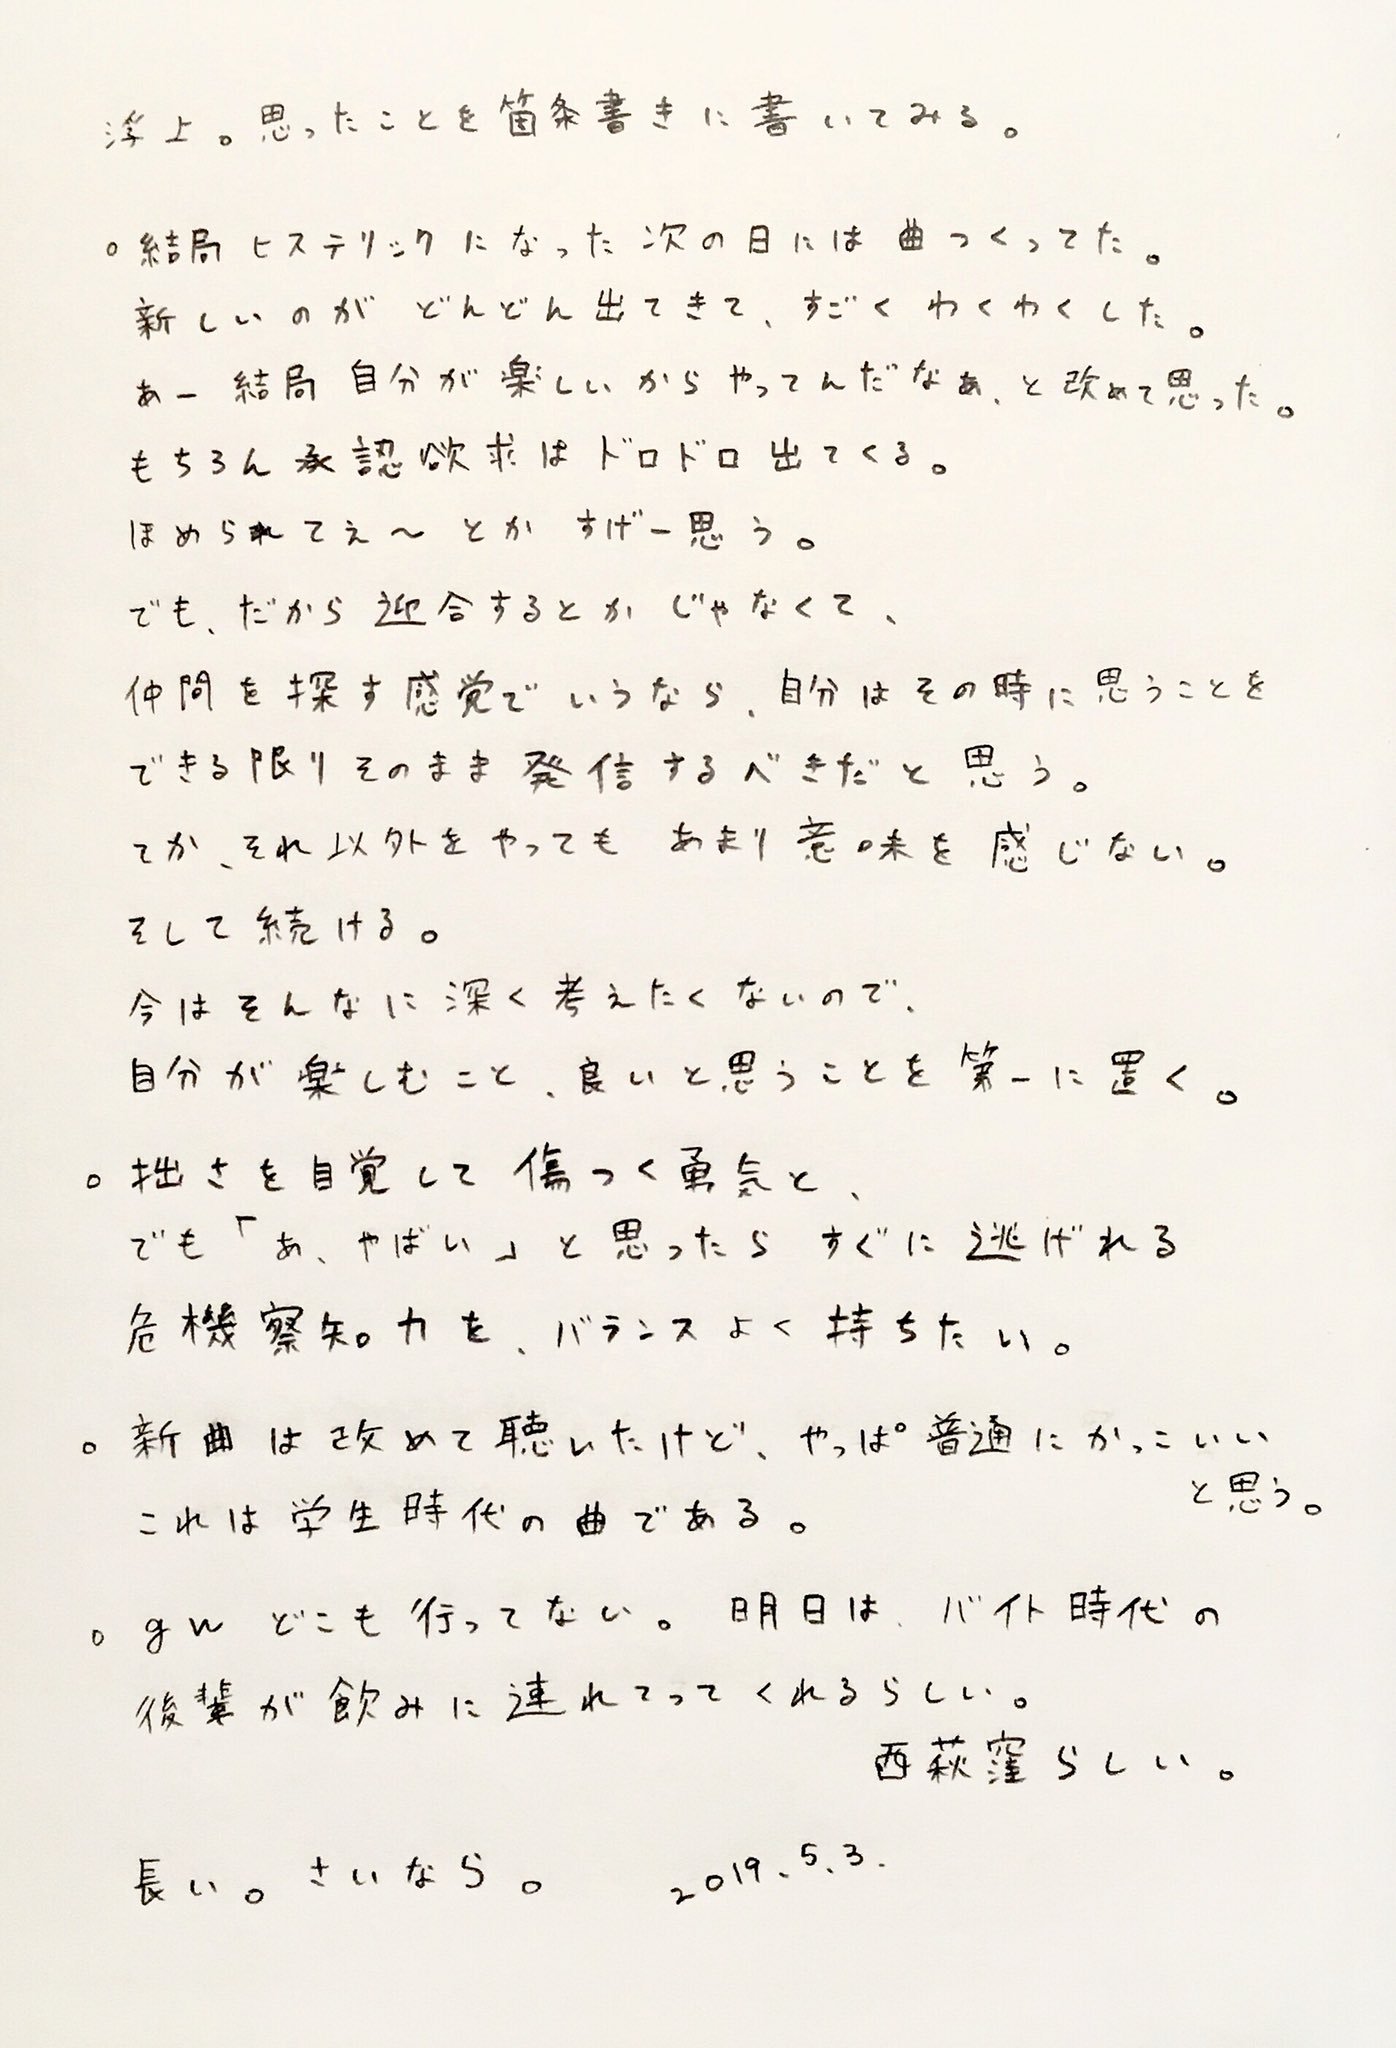 浮上。思ったことを箇条書きに書いてみる。
○結局ヒステリックになった次の日には曲つくってた。
新しいのがどんどん出てきて、すごくわくわくした。
あー結局自分が楽しいからやってんだなぁ、と改めて思った。
もちろん承認欲求はドロドロ出てくる。
ほめられてぇ〜とかすげー思う。
でも、だから迎合するとかじゃなくて、
仲間を探す感覚でいうなら、自分はその時に思うことを
できる限りそのまま発信するべきだと思う。
てか、それ以外をやってもあまり意味を感じない。
そして続ける。
今はそんなに深く考えたくないので、
自分が楽しむこと、良いと思うことを第一に置く。
○拙さを自覚して傷つく勇気と、
でも「あ、やばい」と思ったらすぐに逃げれる
危機察知力を、バランスよく持ちたい。
○新曲は改めて聴いたけど、やっぱ普通にかっこいい
と思う。
これは学生時代の曲である。
○gwどこも行ってない。明日は、バイト時代の
後輩が飲みに連れてってくれるらしい。
西荻窪らしい。
長い。さいなら。 2019.5.3.